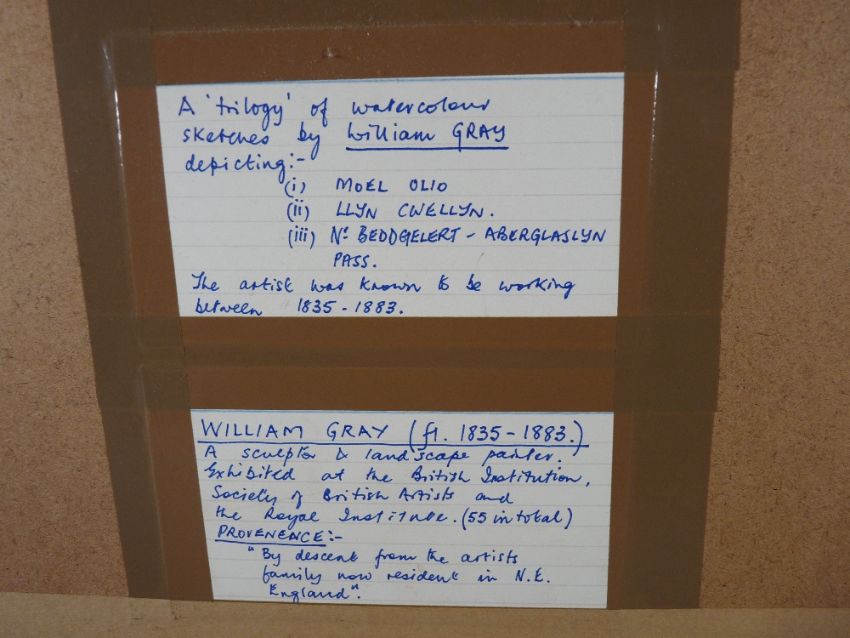 A 'trilogy' of watercolour
sketches by William GRAY
depicting:-
(i) MOEL OLIO
(ii) LLYN CWELLYN.
(iii) Nr BEDDGELERT - ABERGLASLYN
PASS.
The artist was known to be working
between 1835 - 1883.
WILLIAM GRAY (fl. 1835 - 1883.)
A sculptor & landscape painter.
Exhibited at the British Institution,
Society of British Artists and
the Royal Institute. (55 in total)
PROVENENCE:-
"By descent from the artists
family now resident in N.E.
England".